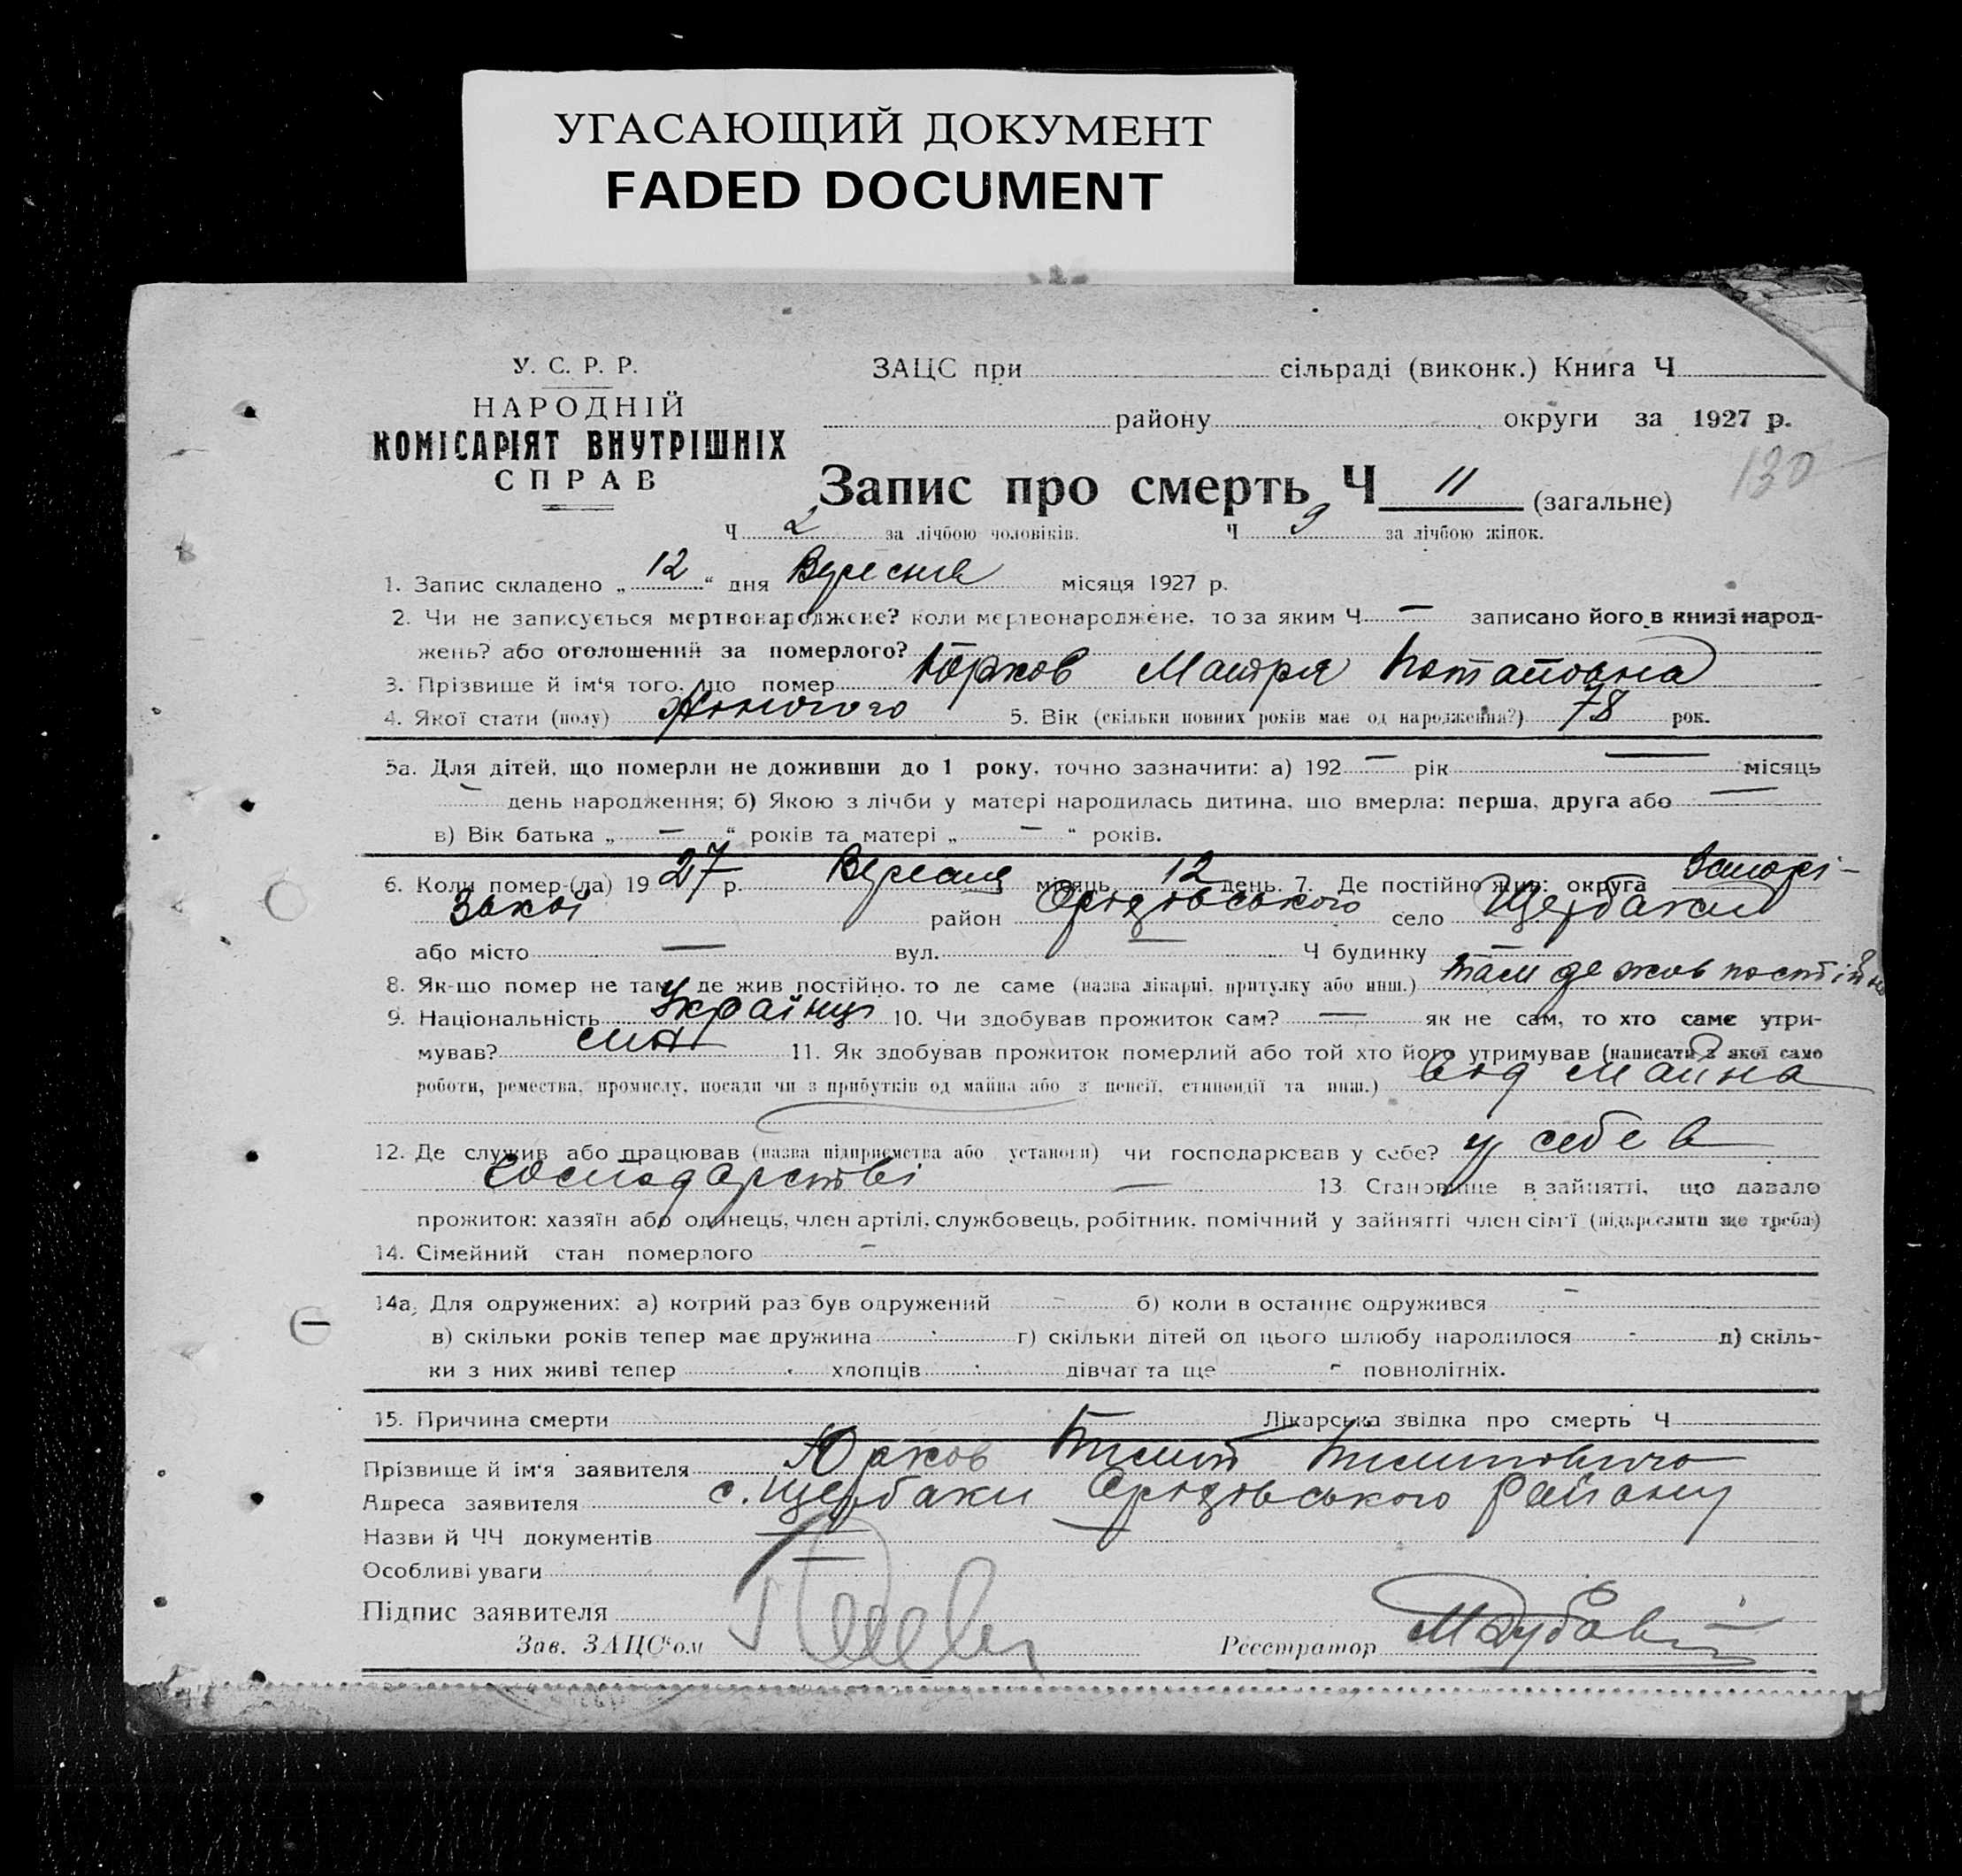 УГАСАЮЩИЙ ДОКУМЕНТ
FADED DOCUMENT
У. С. Р. Р.
НАРОДНІЙ
КОМІСАРІЯТ ВНУТРІШНІХ
СПРАВ
ЗАЦС при сільраді (виконк.) Книга Ч
району округи за 1927 р.
130
Запис про смерть Ч 11 (загальне)
Ч 2 за лічбою чоловіків. Ч 9 за лічбою жінок.
1. Запис складено „ 12 “ дня Вересня місяця 1927 р.
2. Чи не записується мертвонароджене? коли мертвонароджене, то за яким Ч — записано його в книзі народ-
жень? або оголошений за померлого?
3. Прізвище й ім'я того, що помер Юрков Мотря Потаповна
4. Якої стати (полу) Жіночого 5. Вік (скільки повних років має од народження?) 78 рок.
5а. Для дітей, що померли не доживши до 1 року, точно зазначити: а) 192 — рік — місяць
— день народження; б) Якою з лічби у матері народилась дитина, що вмерла: перша, друга або —
в) Вік батька „ — “ років та матері „ — “ років.
6. Коли помер-(ла) 1927 р. Вересня місяць 12 день. 7. Де постійно жив: округа Запорі-
зької район Оріхівського село Щербаки
або місто — вул. — Ч будинку —
8. Як-що помер не там, де жив постійно, то де саме (назва лікарні, притулку або инш.) там де жив постійно
9. Національність Українці 10. Чи здобував прожиток сам? — як не сам, то хто саме утри-
мував? син 11. Як здобував прожиток померлий або той хто його утримував (написати з якої само
роботи, ремества, промислу, посади чи з прибутків од майна або з пенсії, стипендії та инш.) від майна
12. Де служив або працював (назва підприємства або установи) чи господарював у себе? у себе в
господарстві — 13. Становище в зайнятті, що давало
прожиток: хазяїн або одинець, член артілі, службовець, робітник, помічний у зайнятті член сім'ї (підкреслити що треба)
14. Сімейний стан померлого —
14а. Для одружених: а) котрий раз був одружений б) коли в останнє одружився —
в) скільки років тепер має дружина г) скільки дітей од цього шлюбу народилося - д) скіль-
ки з них живі тепер хлопців дівчат та ще - повнолітніх.
15. Причина смерти — Лікарська звідка про смерть Ч
Прізвище й ім'я заявителя Юрков
Адреса заявителя с. Щербаки Оріхівського Району
Назви й ЧЧ документів —
Особливі уваги —
Підпис заявителя
Зав. ЗАЦС'ом Реєстратор